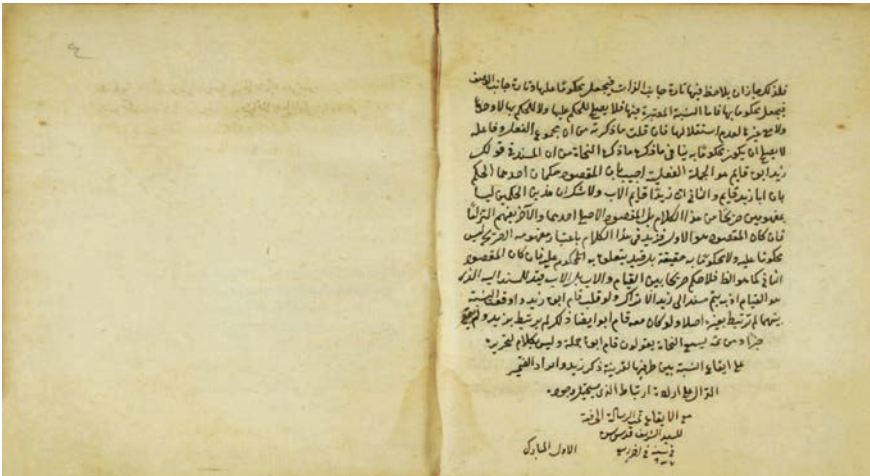 فلذلك جاز ان يلاحظ فيها تارة جانب الذات فيجعل محكوما عليها وتارة جانب الوصف
فيجعل محكوما بها واما النسبة المعتبرة فيها فلا يصلح للحكم عليها ولا للحكم بها لا وحدها
ولا مع غيرها لعدم استقلالها فان قلت ما ذكرته من ان مجموع الفعل وفاعله
لا يصلح ان يكون محكوما به ينافى ما ذكره النحاة من ان المسند فى قولك
زيد ابوه قايم هو الجملة الفعلية اجيب بان المقصود حكمان احدهما الحكم
بان ابا زيد قايم والثانى ان زيدا قايم الاب ولا شك ان هذين الحكمين ليسا
بمفهومين صريحا من هذا الكلام بل المقصود الاصلى احدهما والآخر يفهم التزاما
فان كان المقصود هو الاول فزيد فى هذا الكلام باعتبار مفهومه الصريح ليس
محكوما عليه ولا محكوما به حقيقة بل قيد يتعلق به المحكوم عليه وان كان المقصود
الثانى كما هو الظ فلا حكم صريحا بين القيام والاب بل الاب قيد للمسند اليه الذى
هو القيام اذ به يتم مسندا الى زيد الا تراك لو قلت قام ابو زيد واوقعت النسبة
بينهما لم ترتبط بغيره اصلا ولو كان معنى قام ابوه ايضا ذلك لم يرتبط بزيد ولم يقع
خبرا ومن ثمه يسمع النحاة يقولون قام ابوه جملة وليس بكلام لتجريده
على ايقاع النسبة بين طرفيها لقرينة ذكر زيد وايراد الضمير
الدال على الارتباط الذى يستحيل وجوده
مع الايقاع تمت الرسالة الحرفية
للسيد الشريف قدس سره
الاول المبارك